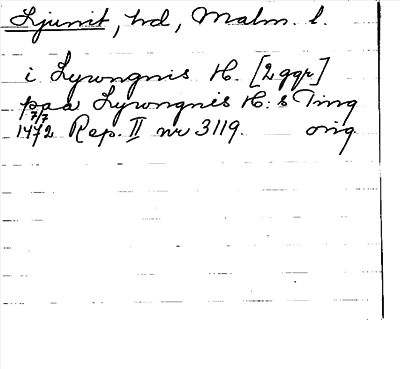 Ljunit, hd, Malm. l.
i Lywngnis H. [2 ggr]
paa Lywngnis H:s Ting
7/7
1472 Rep. II nr 3119. orig.